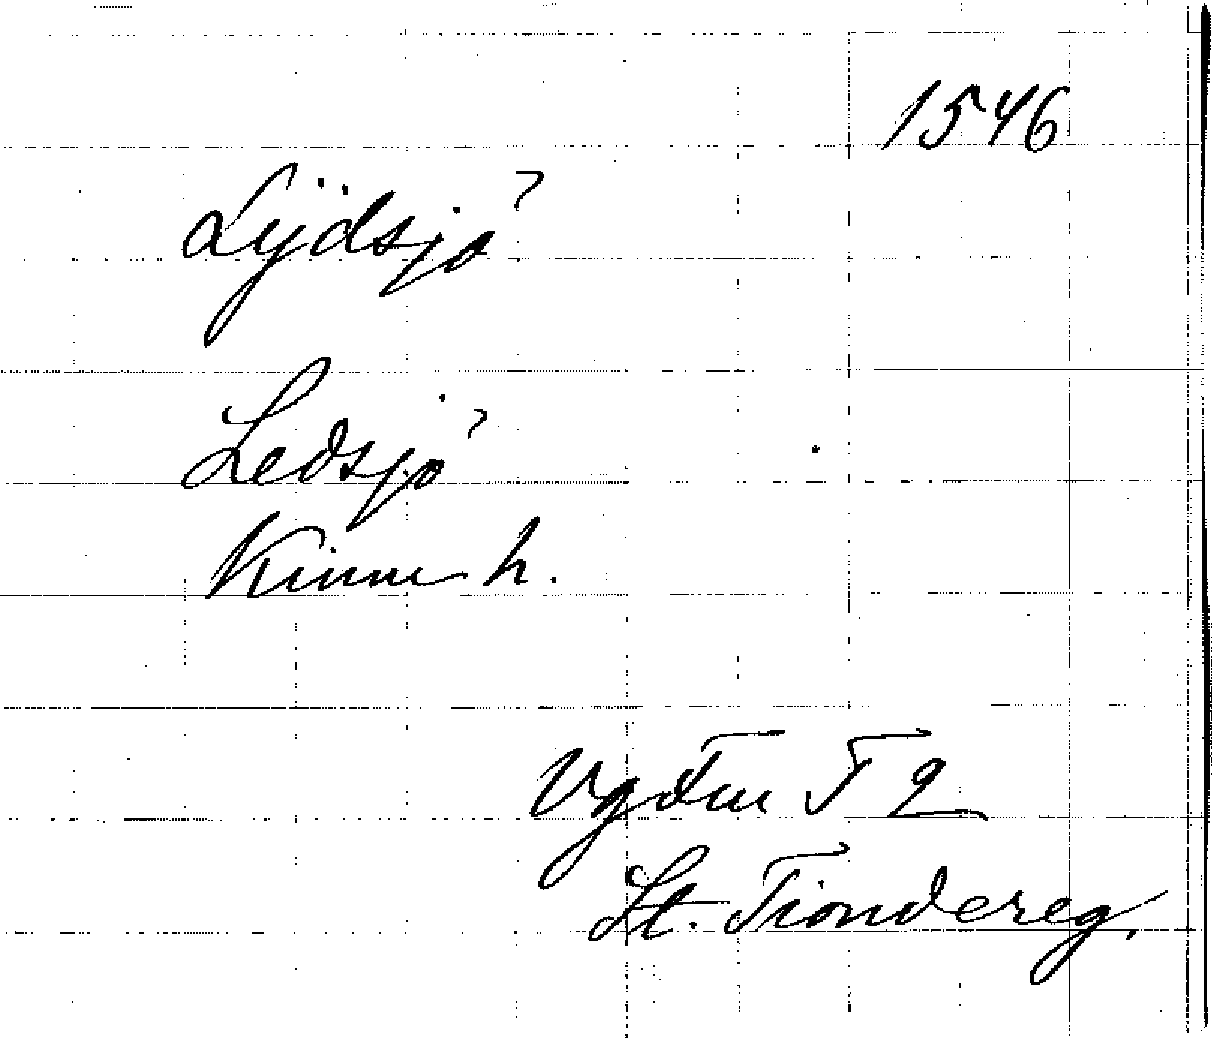 1546
Lÿdsjö
Ledsjö
Kinne h.
T 2
Lt. Tiondereg.